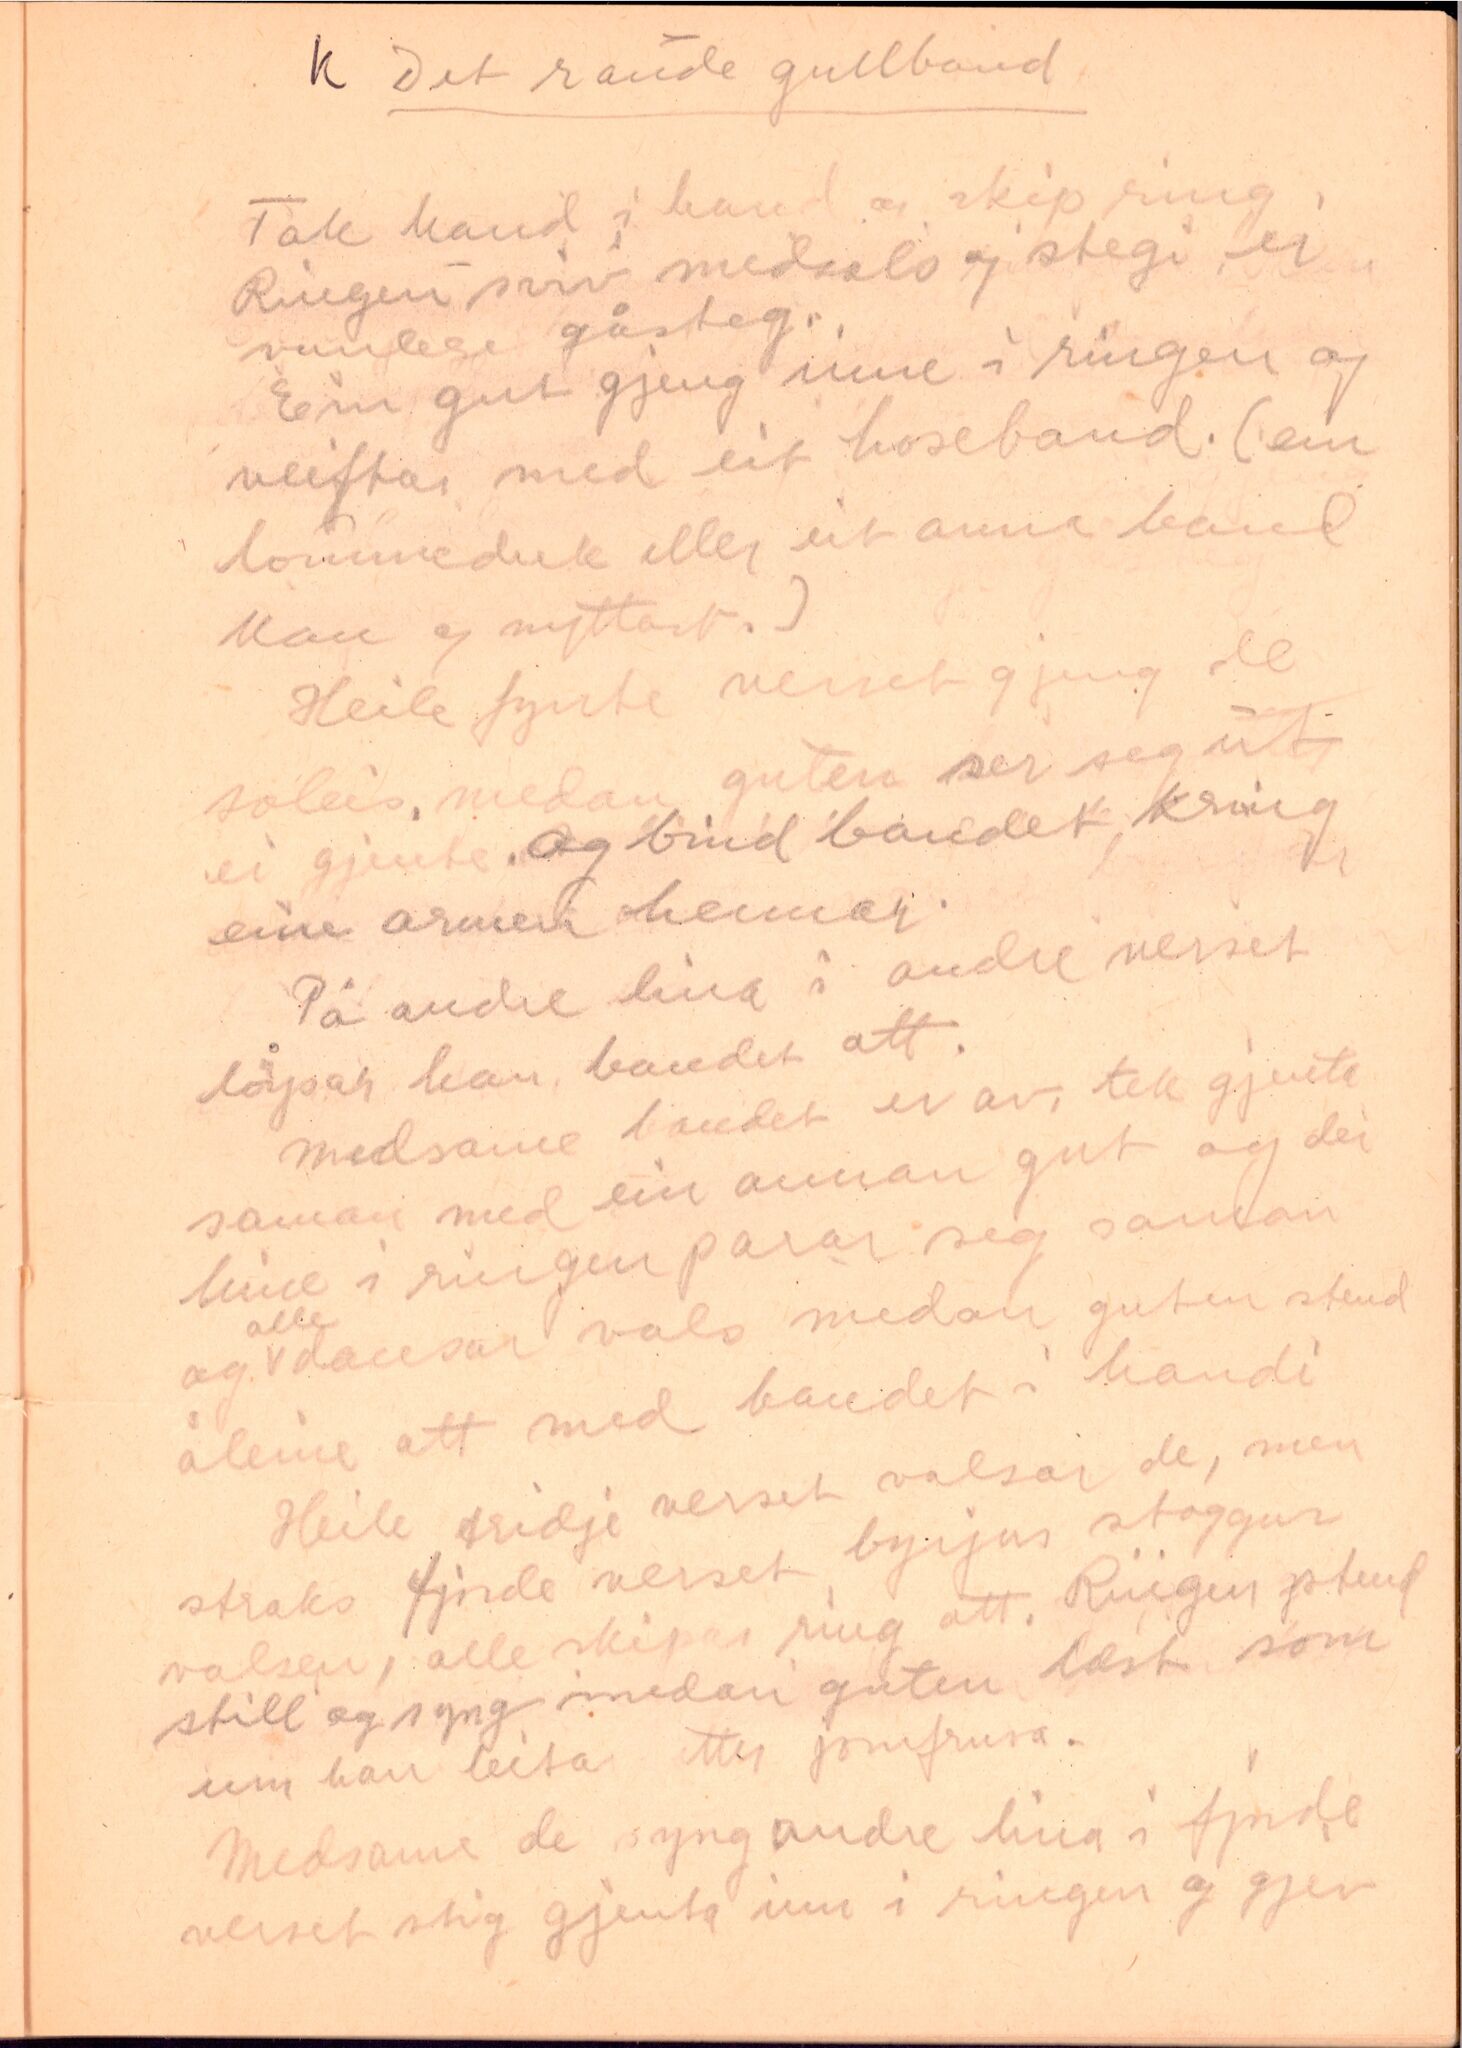 K Det raude gullband
Tak hand i hand og skip ring.
Ringen sviv medsols og stegi er
vanlege gåsteg.
Ein gut gjeng inne i ringen og
veiftar med eit hoseband. (ein
lommeduk eller eit anna band
kan og nyttast.)
Heile fyrste verset gjeng de
soleis, medan guten ser seg ut
ei gjente. og bind bandet kring
eine armen hennar.
På andre lina i andre verset
løyser han bandet att.
Medsame bandet er av, tek gjenta
saman med ein annan gut og dei
hine i ringen parar seg saman
og alle dansar vals medan guten stend
åleine att med bandet i handi
Heile tridje verset valsar de, men
straks fjorde verset byrjar stoggar
valsen, alle skipar ring att. Ringen stend
still og syng medan guten læst som
um han leita etter jomfruva.
Medsame de syng andre lina i fjorde
verset stig gjenta inn i ringen og gjev